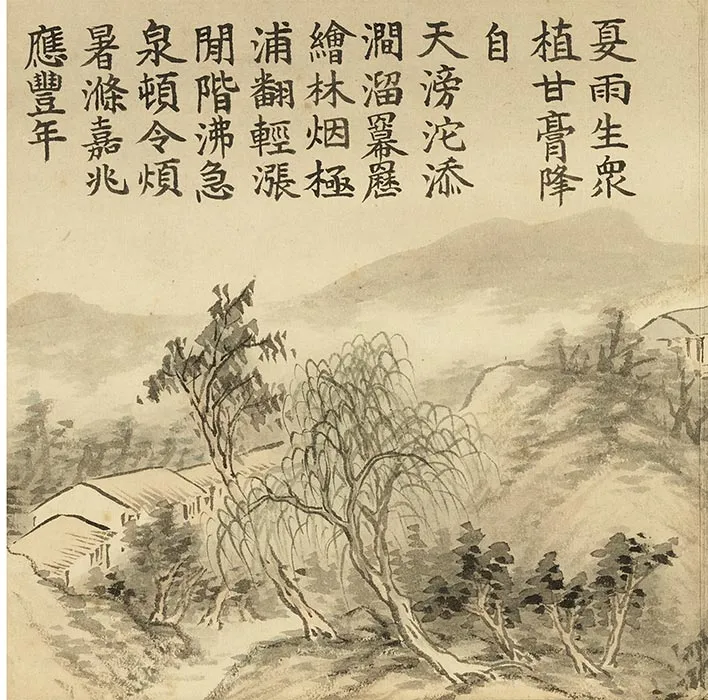 夏雨生衆
植甘膏降
自
天滂沱添
澗溜羃䍥
繪林烟極
浦翻輕漲
閒階沸急
泉頓令煩
暑滌嘉兆
應豐年